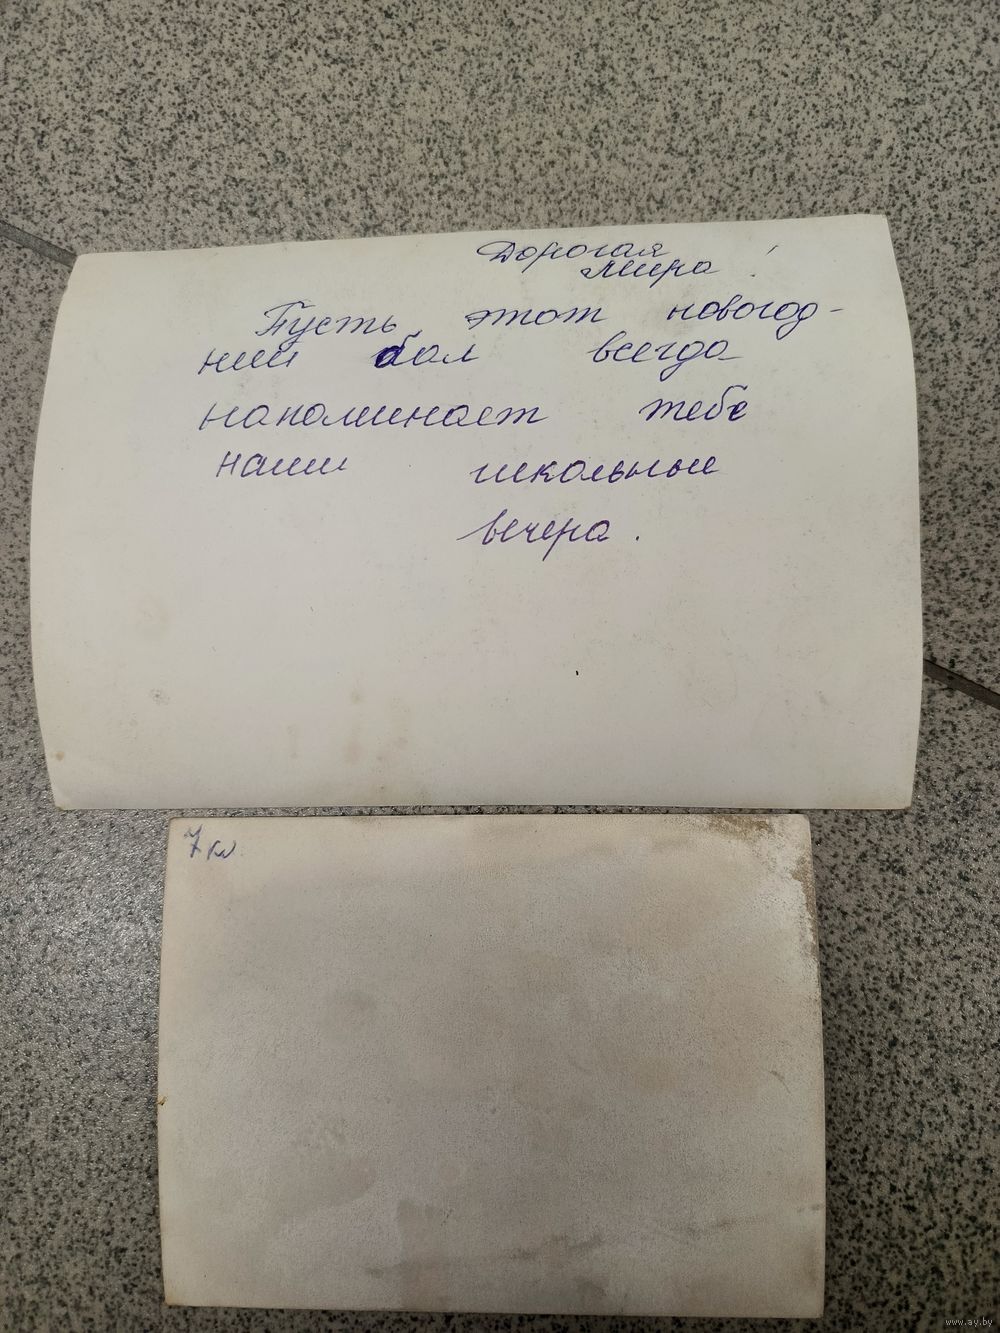 Дорогая
Мира !
Пусть этот новогод-
ний бал всегда
напоминает тебе
наши школьные
вечера.
7 кл
www.ay.by